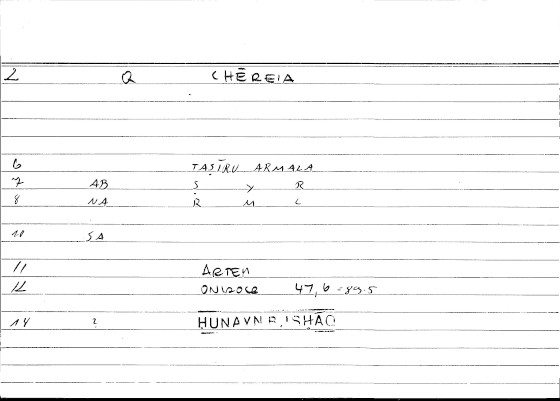 2 Q CHĒREIA
6 TAṢĪRU ARMALA
7 AB Ṣ Y R
8 NA R M L
10 SA
11 ARTEM
12 47,6-89.5
14 ḤUNAYN B. ISḤĀQ